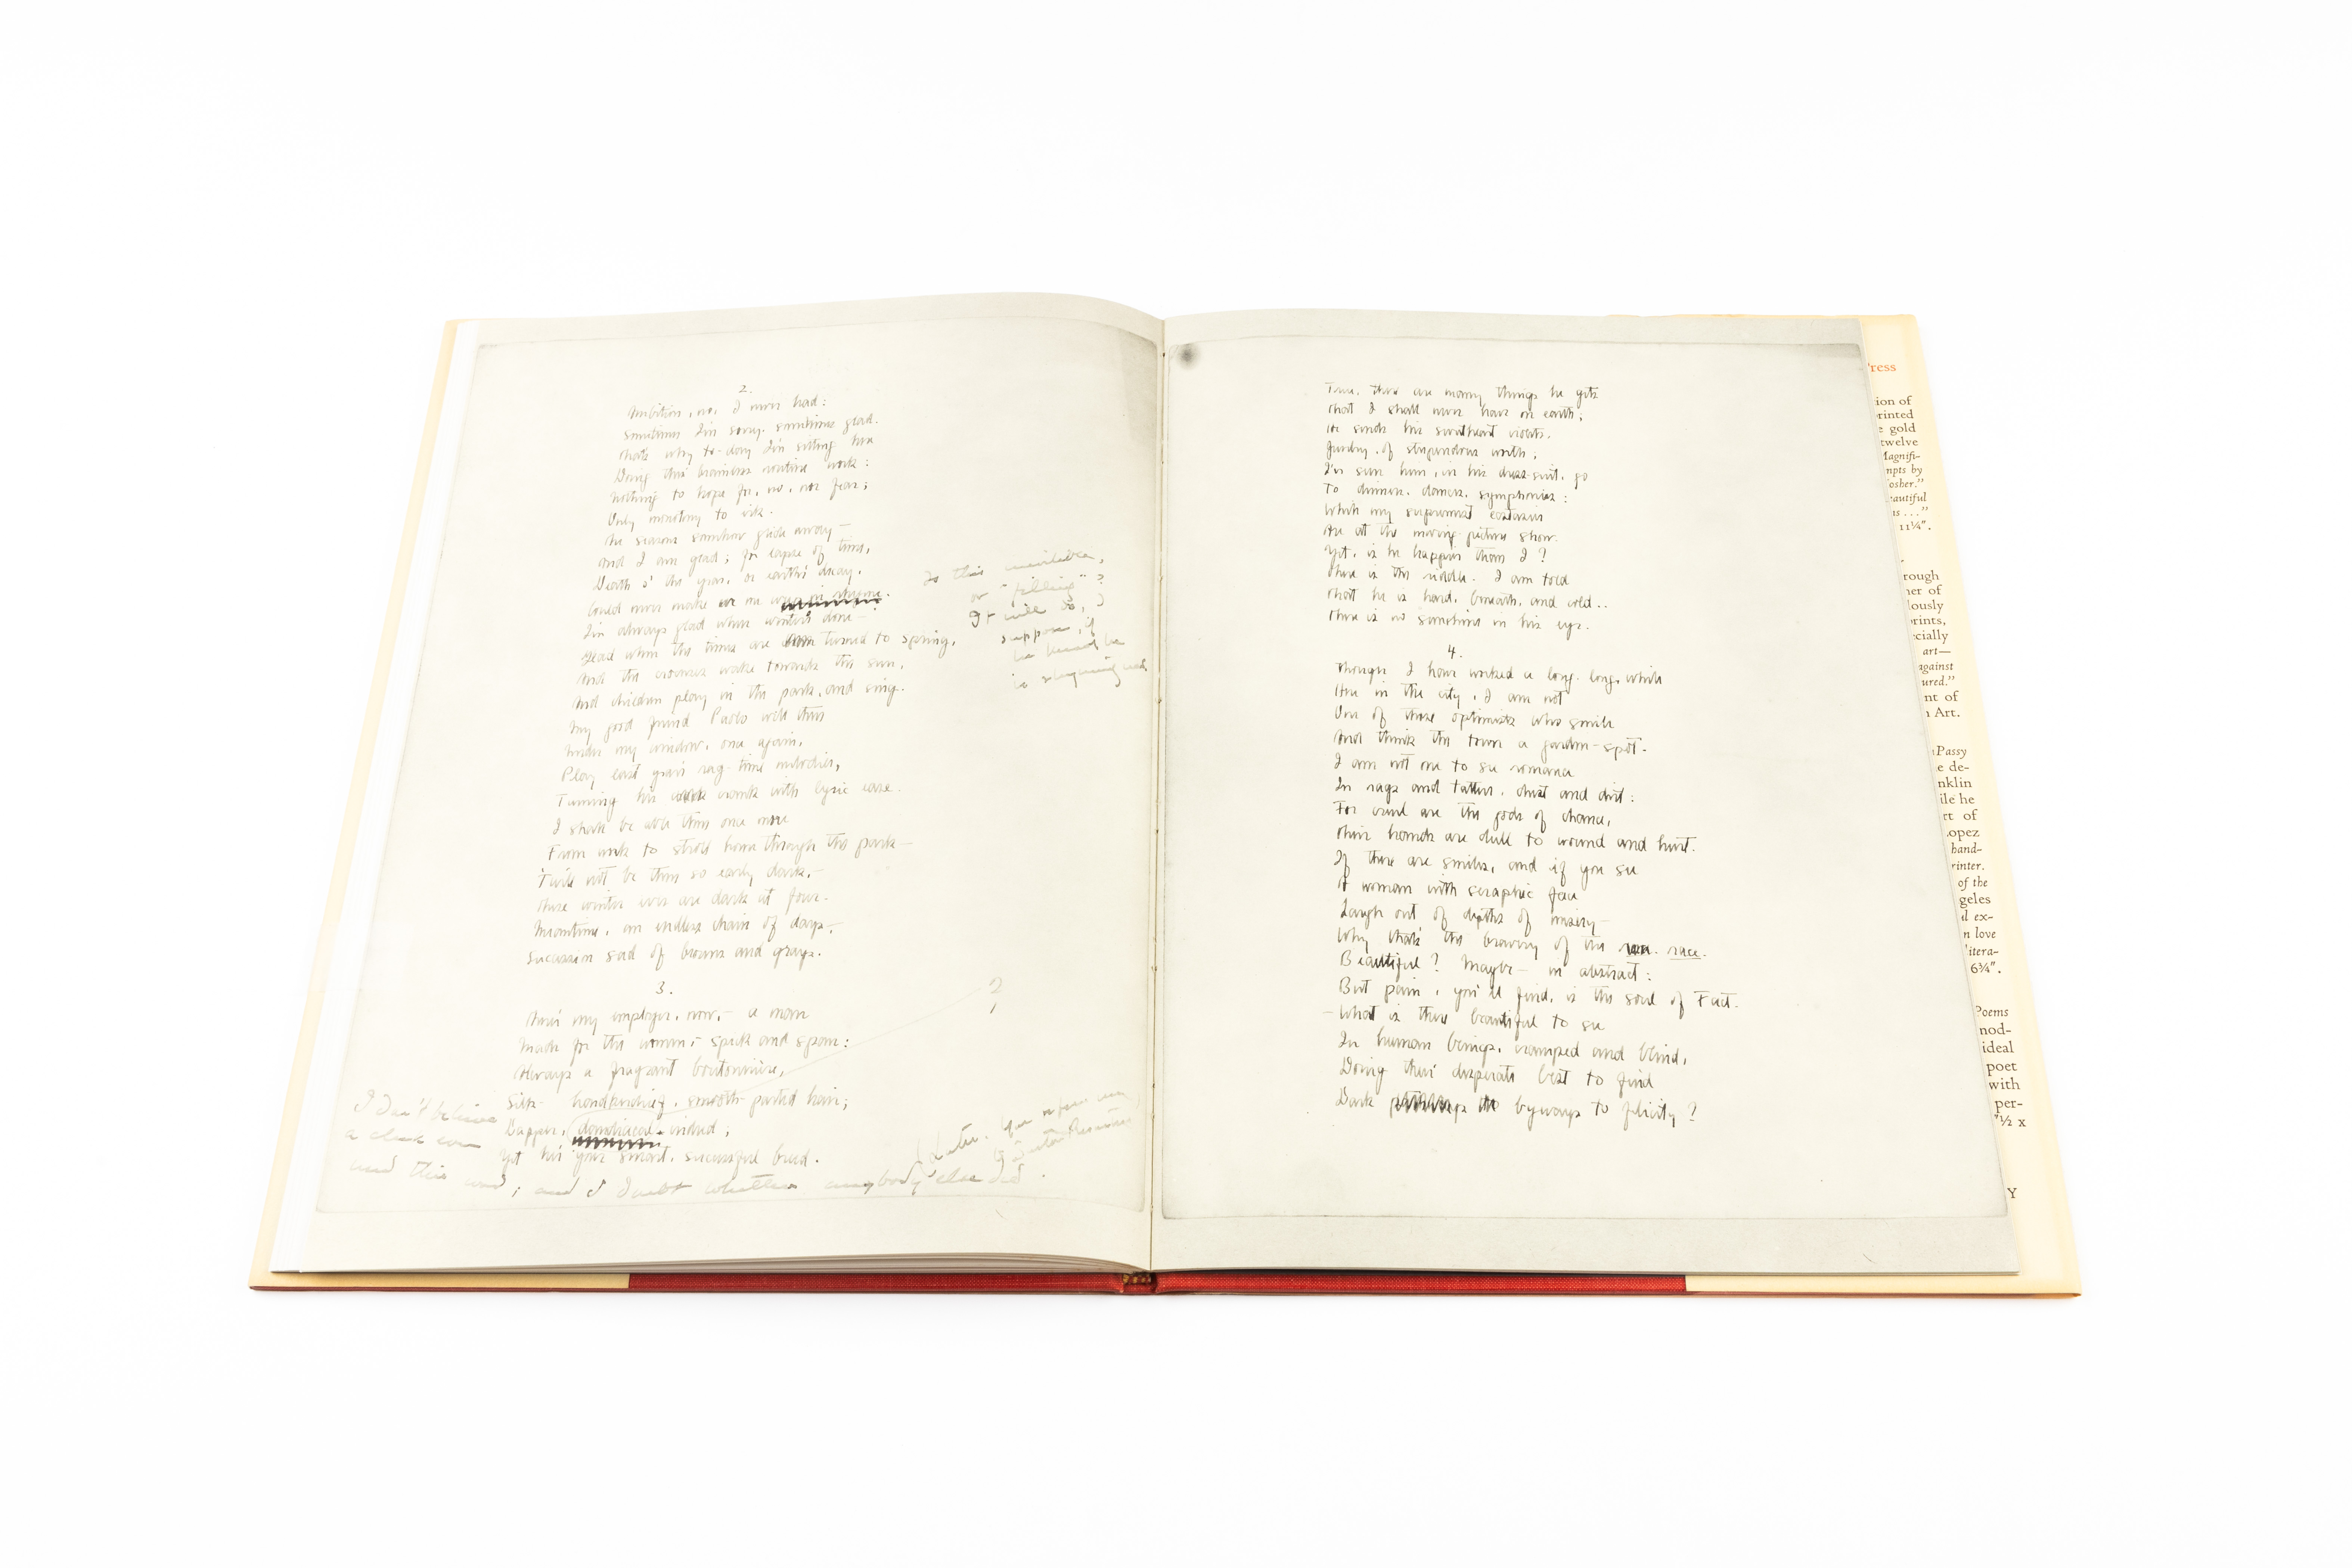 2.
Ambition, no, I never had:
Sometimes I'm sorry, sometimes glad.
That's why to-day I'm sitting here
Doing this brainless routine work:
Nothing to hope for, no, nor fear;
Only monotony to irk.
The seasons somehow glide away—
And I am glad; for lapse of time,
Death o' the year, or earth's decay,
Could never make me
I'm always glad when winter's done—
Glad when the times are turned to spring,
And the crocuses wake towards the sun,
And children play in the park, and sing..
My good friend Paolo will then
Under my window, once again,
Play last year's rag-time melodies,
Turning his crank with lyric ease.
I shall be able then once more
From work to stroll home through the park—
'Twill not be then so early dark,—
These winter eves are dark at four.
Meantime, an endless chain of days,—
Succession sad of browns and grays.
Is this inevitable,
or "filling"?
It will do, I
suppose, if
he
is
3.
There's my employer, now,— a man
Made for the women,— spick and span:
Always a fragrant boutonnière,
Silk handkerchief, smooth-parted hair;
Dapper, indeed;
Yet he's your smart, successful breed.
?
I don't believe
a clerk
used this word; and I doubt whether anybody else did.
(Later.
True, there are many things he gets
That I shall never have on earth;
He sends his sweetheart violets,
Jewelry of stupendous worth;
I've seen him, in his dress-suit, go
To dinners, dances, symphonies:
While my supremest ecstasies
Are at the moving-picture show.
Yet, is he happier than I?
There is the riddle. I am told
That he is hard, beneath, and cold..
There is no sunshine in his eye.
4.
Though I have worked a long, long, while
Here in the city, I am not
One of those optimists who smile
And think the town a garden-spot.
I am not one to see romance
In rags and tatters, dust and dirt:
For cruel are the gods of chance,
Their hands are dull to wound and hurt.
If there are smiles, and if you see
A woman with seraphic face
Laugh out of depths of misery—
Why that's the bravery of the race.
Beautiful? Maybe— in abstract:
But pain, you'll find, is the soul of Fact.
—What is there beautiful to see
In human beings, cramped and blind,
Doing their desperate best to find
Dark byways to felicity?
ress
ion of
rinted
e gold
twelve
Magnifi-
mpts by
osher."
eautiful
ns . . ."
11¼".
rough
er of
lously
prints,
ecially
art—
against
ured."
nt of
Art.
Passy
e de-
nklin
ile he
rt of
opez
hand-
rinter.
of the
geles
l ex-
n love
litera-
6¾".
Poems
nod-
ideal
poet
with
per-
½ x
Y